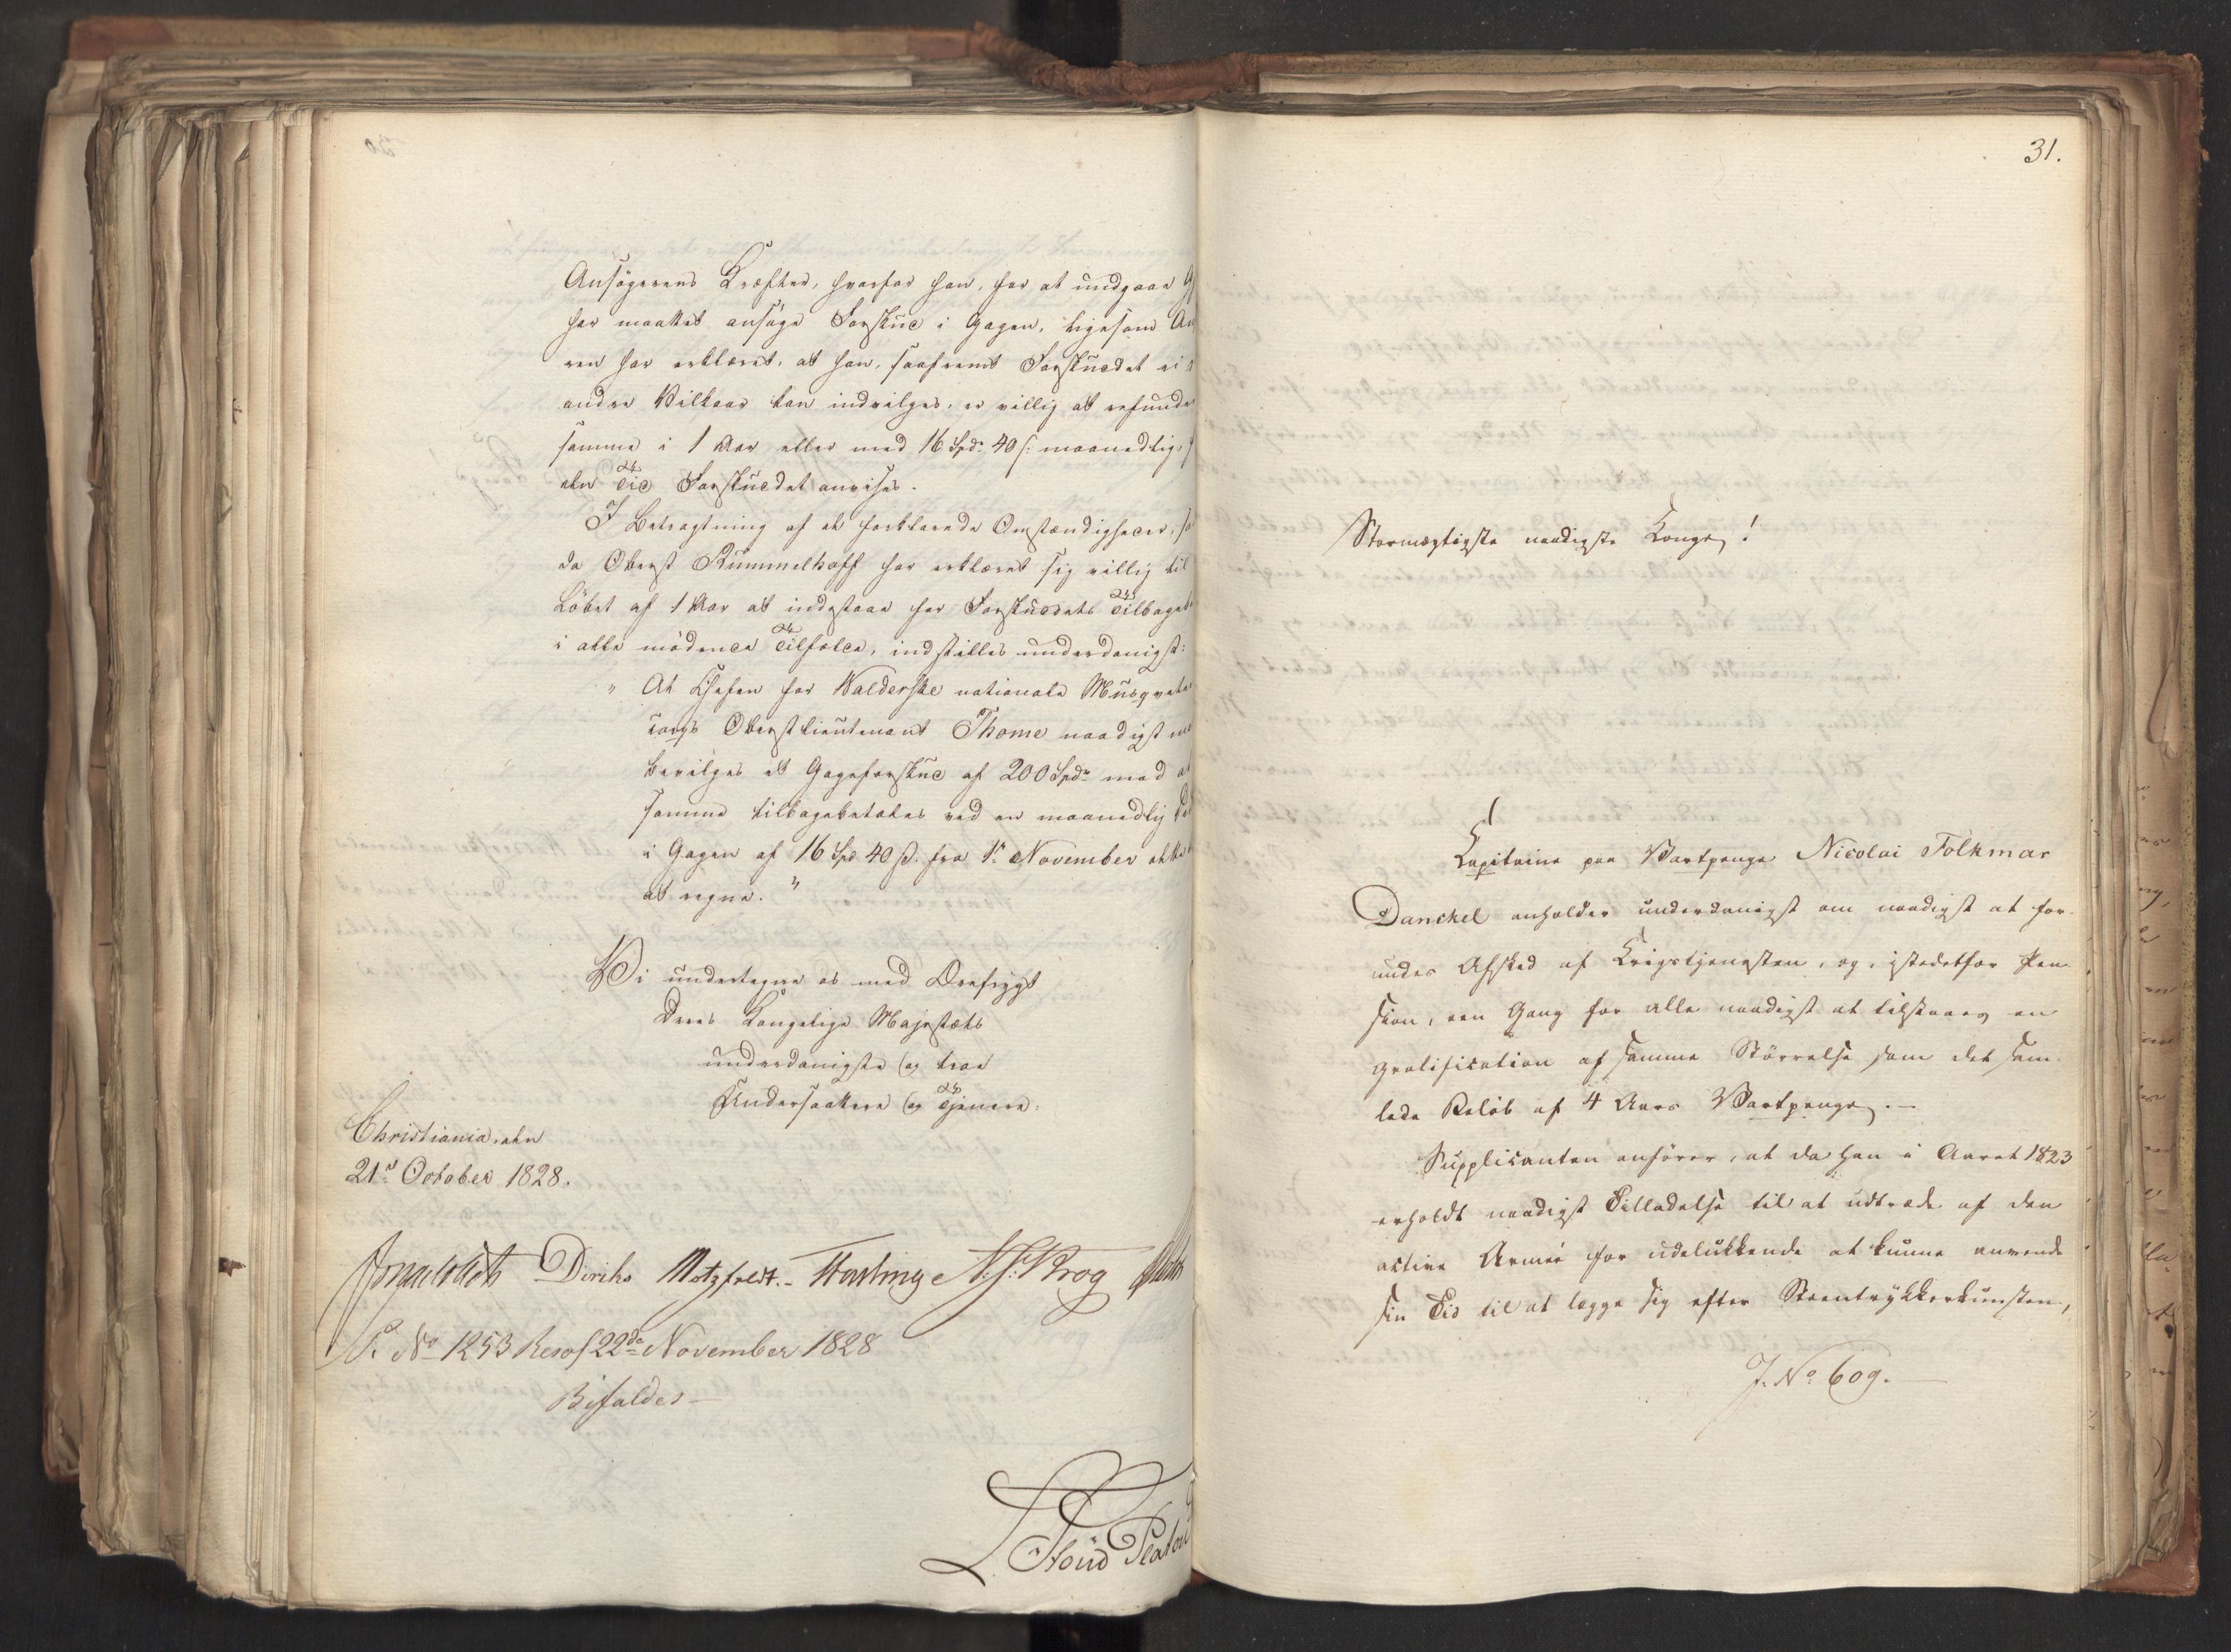 Ansögerens Kræfter, hvorfor han, for at undgaae
har maattet ansöge Forskud i Gagen, ligesom
ren har erklæret, at han, saafremt Forskuddet ei
andre Vilkaar kan indvilges, er villig at refunde
samme i 1 Aar eller med 16 Spd: 40 s: maanedlig,
den Tid Forskuddet anvises.
I Betragtning af de forklarede Omstændigheder,
da Oberst Rummelhoff har erklæret sig villig til
Löbet af 1 Aar at indestaae for Forskuddets Tilbage
i alle mödende Tilfælde, indstilles underdanigst:
" At Chefen for Walderske nationale Musqvete
corps Oberstlieutenant Thome naadigst
bevilges et Gageforskud af 200 Spdr med at
samme tilbagebetales ved en maanedlig
i Gagen af 16 Spd 40 ß. fra 1ste November
at regne. "
Vi undertegne os med Ærefrygt
Deres Kongelige Majestæts
underdanigste og troe
Undersaattere og Tjenere.
Christiania, den
21de October 1828.
Diriks Motzfeldt. N. J. Krog
P. No 1253 Resol 22de November 1828
Bifaldes
31.
Stormægtigste naadigste Konge!
Kapitaine paa Vartpenge Nicolai Folkmar
Danckel anholder underdanigst om naadigst at for-
undes Afsked af Krigstjenesten, og, istedetfor Pen-
sion, een Gang for alle naadigst at tilstaaes en
gratification af samme Störrelse som det sam-
lede Belöb af 4 Aars Vartpenge.-
Supplicanten anförer, at da han i Aaret 1823
erholdt naadigst Tilladelse til at udtræde af den
active Armée for udelukkende at kunne anvende
sin Tid til at lægge sig efter Steentrykkerkunsten,
J. No 609.